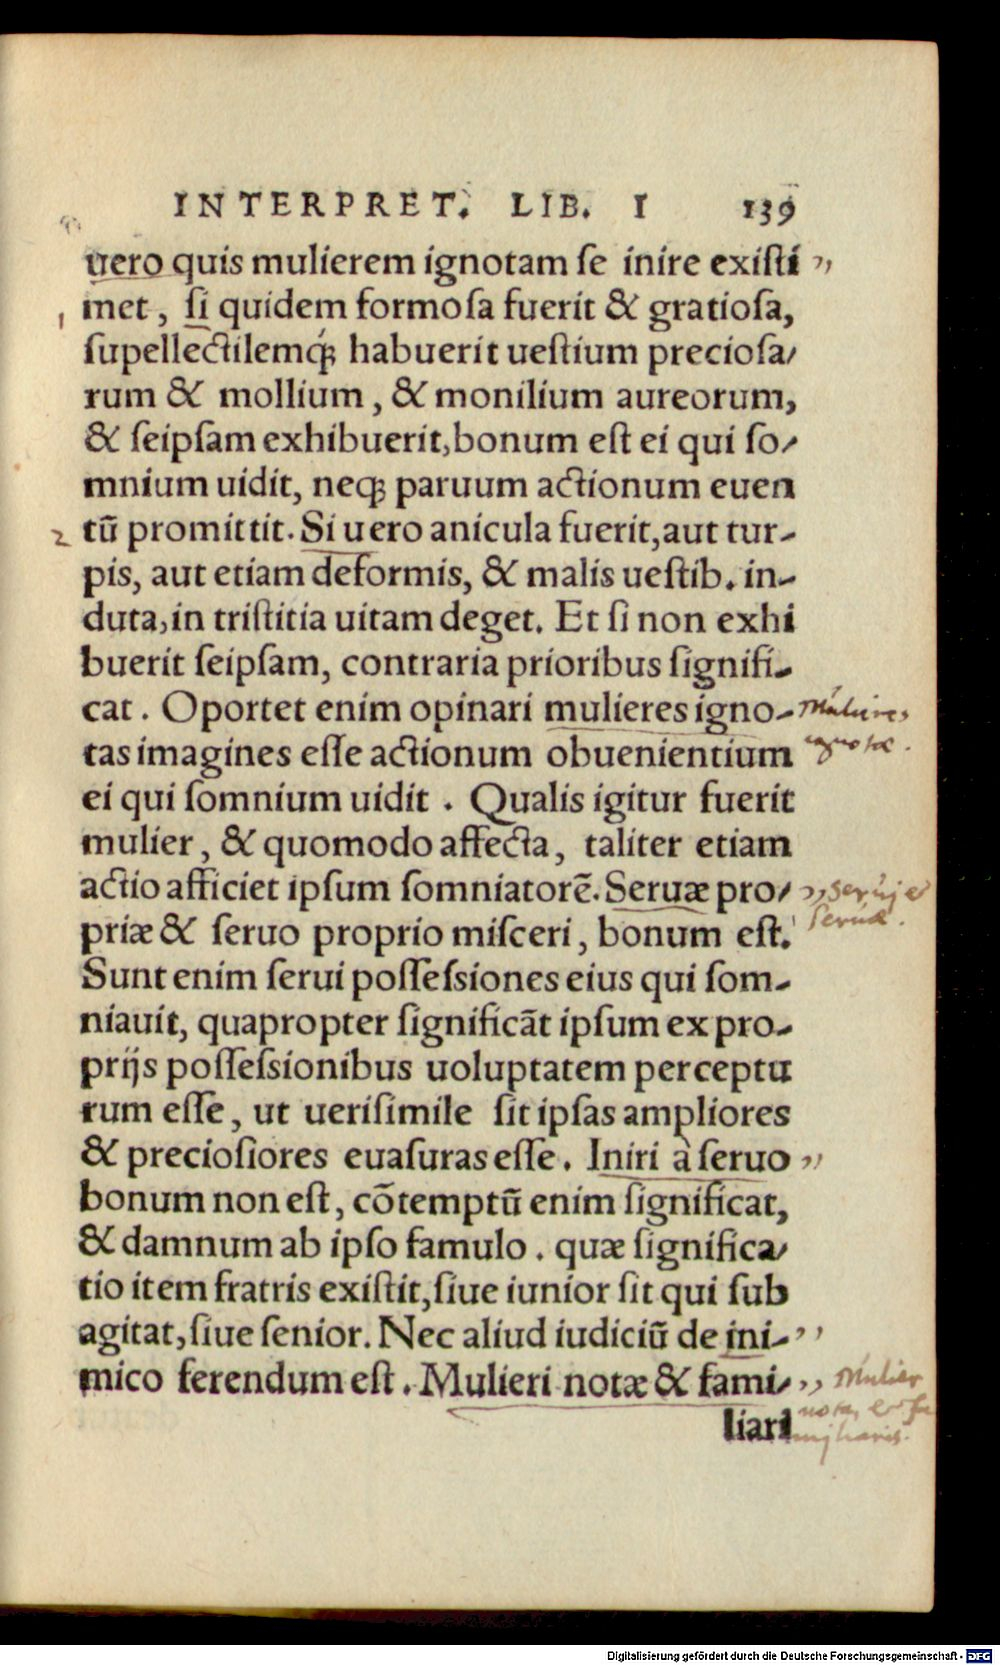 INTERPRET. LIB. I 139
uero quis mulierem ignotam se inire existi ,,
1 met, si quidem formosa fuerit & gratiosa,
supellectilemq́; habuerit uestium preciosa/
rum & mollium, & monilium aureorum,
& seipsam exhibuerit, bonum est ei qui so/
mnium uidit, neq; paruum actionum euen
2 tū promittit. Si uero anicula fuerit, aut tur-
pis, aut etiam deformis, & malis uestib. in-
duta, in tristitia uitam deget. Et si non exhi
buerit seipsam, contraria prioribus signifi-
cat. Oportet enim opinari mulieres igno- Mulieres
tas imagines esse actionum obuenientium ignotae.
ei qui somnium uidit. Qualis igitur fuerit
mulier, & quomodo affecta, taliter etiam
actio afficiet ipsum somniatorē. Seruæ pro/ ,, Serui et
priæ & seruo proprio misceri, bonum est. seruae.
Sunt enim serui possessiones eius qui som-
niauit, quapropter significāt ipsum ex pro-
prijs possessionibus uoluptatem perceptu
rum esse, ut uerisimile sit ipsas ampliores
& preciosiores euasuras esse. Iniri à seruo ,,
bonum non est, cōtemptū enim significat,
& damnum ab ipso famulo. quæ significa/
tio item fratris existit, siue iunior sit qui sub
agitat, siue senior. Nec aliud iudiciū de ini- ,,
mico ferendum est. Mulieri notæ & fami/ ,, Mulier
nota, et fa
liari miliaris.
Digitalisierung gefördert durch die Deutsche Forschungsgemeinschaft - DFG